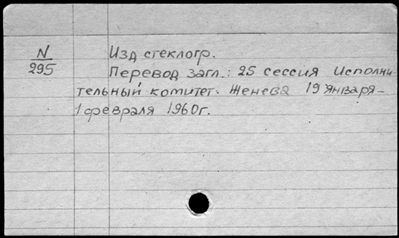 N
295
Изд стеклогр.
Перевод загл.: 25 сессия Исполни
тельный комитет. Женева 19 января-
1 февраля 1960г.